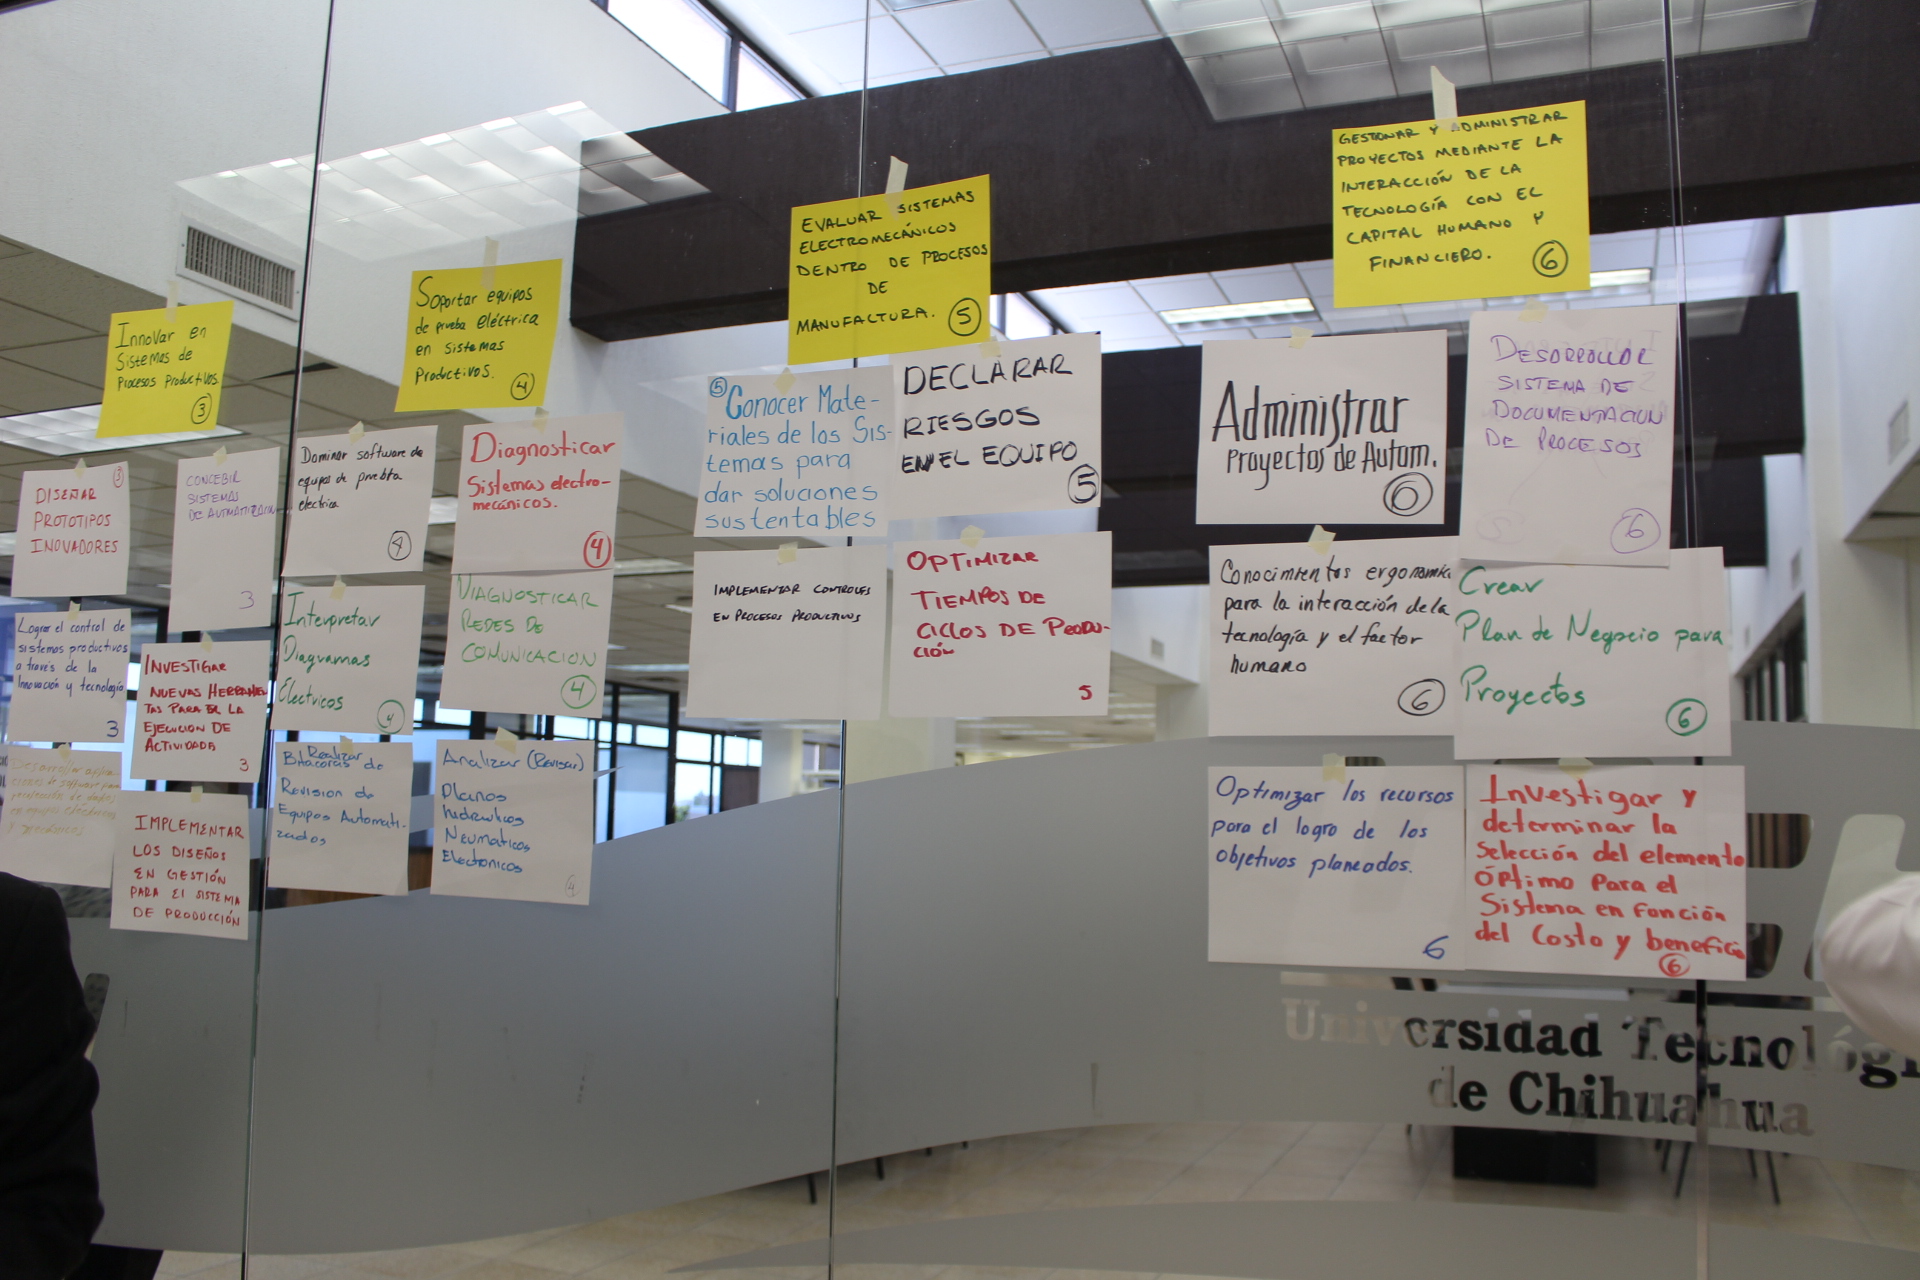 Innovar en
Sistemas de
Procesos Productivos.
3
DISEÑAR
PROTOTIPOS
INOVADORES
3
CONCEBIR
SISTEMAS
DE AUTMATIZACION
3
Lograr el control de
sistemas productivos
a través de la
Innovación y tecnología
3
INVESTIGAR
NUEVAS HERRAMIEN
TAS PARA LA
EJECUCION DE
ACTIVIDADA
3
Desarrollar
de software para
de datos
IMPLEMENTAR
LOS DISEÑOS
EN GESTIÓN
PARA El SISTEMA
DE PRODUCCIÓN
Soportar equipos
de prueba Eléctrica
en sistemas
Productivos.
4
Dominar software de
equipos de prueba
electrica
4
Diagnosticar
Sistemas electro-
mecánicos.
4
Interpretar
Diagramas
Electricos
4
DIAGNOSTICAR
REDES DE
COMUNICACION
4
Realizar
Bitacoras de
Revision de
Equipos Automati-
zados
Analizar (Revisar)
Planos
hidraulicos
Neumaticos
Electronicos
4
EVALUAR SISTEMAS
ELECTROMECÁNICOS
DENTRO DE PROCESOS
DE
MANUFACTURA.
5
5
Conocer Mate-
riales de los Sis-
temas para
dar soluciones
sustentables
DECLARAR
RIESGOS
EN EL EQUIPO
5
IMPLEMENTAR CONTROLES
EN PROCESOS PRODUCTIVOS
OPTIMIZAR
TIEMPOS DE
CICLOS DE PRODU-
CIÓN
5
GESTIONAR Y ADMINISTRAR
PROYECTOS MEDIANTE LA
INTERACCIÓN DE LA
TECNOLOGÍA CON EL
CAPITAL HUMANO Y
FINANCIERO.
6
Administrar
Proyectos de Autom.
6
DESARROLLAR
SISTEMA DE
DOCUMENTACION
DE PROCESOS
6
Conocimientos ergonomia
para la interacción de la
tecnología y el factor
humano
6
Crear
Plan de Negocio para
Proyectos
6
Optimizar los recursos
para el logro de los
objetivos planeados.
6
Investigar y
determinar la
Selección del elemento
Óptimo para el
Sistema en función
del Costo y beneficio
6
Universidad Tecnológi
de Chihuahua